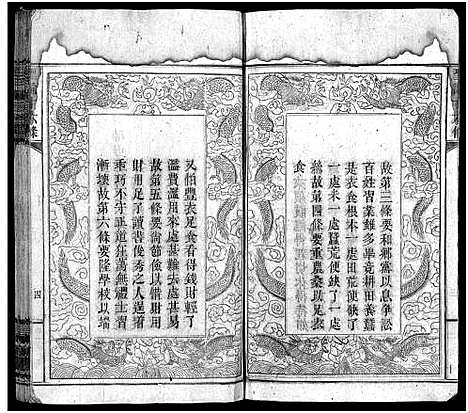 故第三條要和鄉黨以息爭訟
百姓習業雖多畢竟耕田養蠶
是衣食根本一處田荒便缺了
一處米一處蠶荒便缺了一處
綿故第四條要重農桑以足衣
食
又怕豐衣足食看得錢財輕了
濫費濫用來處甚難去處甚易
故第五條要尚節儉以惜財用
財用足了子讀書俊秀之人逞着
乖巧不守正道狂蕩無禮士習
漸壞故第六條要隆學校以端
四